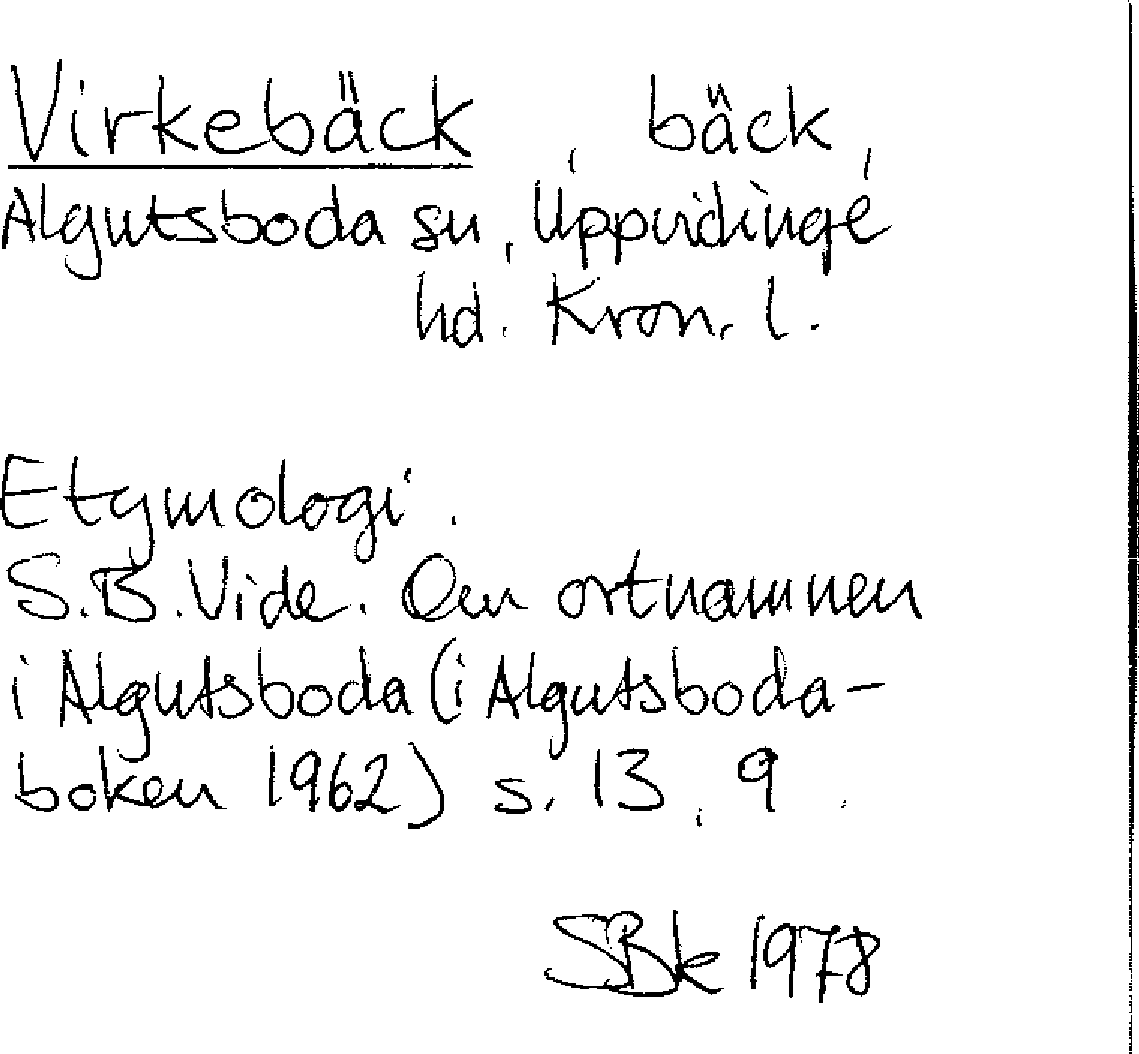 Virkebäck, bäck,
Algutsboda sn, Uppvidinge
hd. Kron. l.
Etymologi.
S.B. Vide. Om ortnamnen
i Algutsboda (i Algutsboda-
boken 1962) s. 13, 9.
SBk 1978